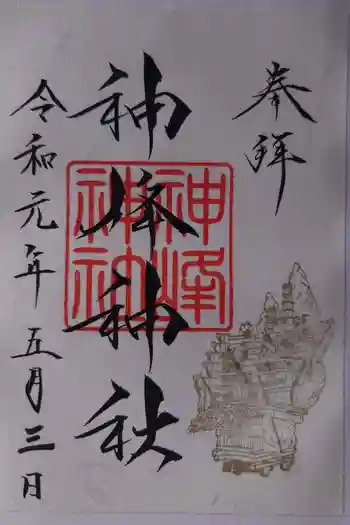 奉拝
神峰神社
令和元年五月三日
神峰
神社